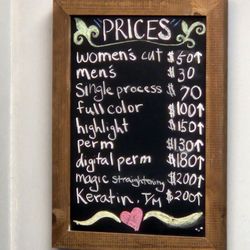 PRICES
women's cut $50↑
men's $30
Single process $70
full color 100↑
highlight $150↑
perm $130↑
digital perm $180↑
magic straightening $200↑
Keratin, T/M $200↑